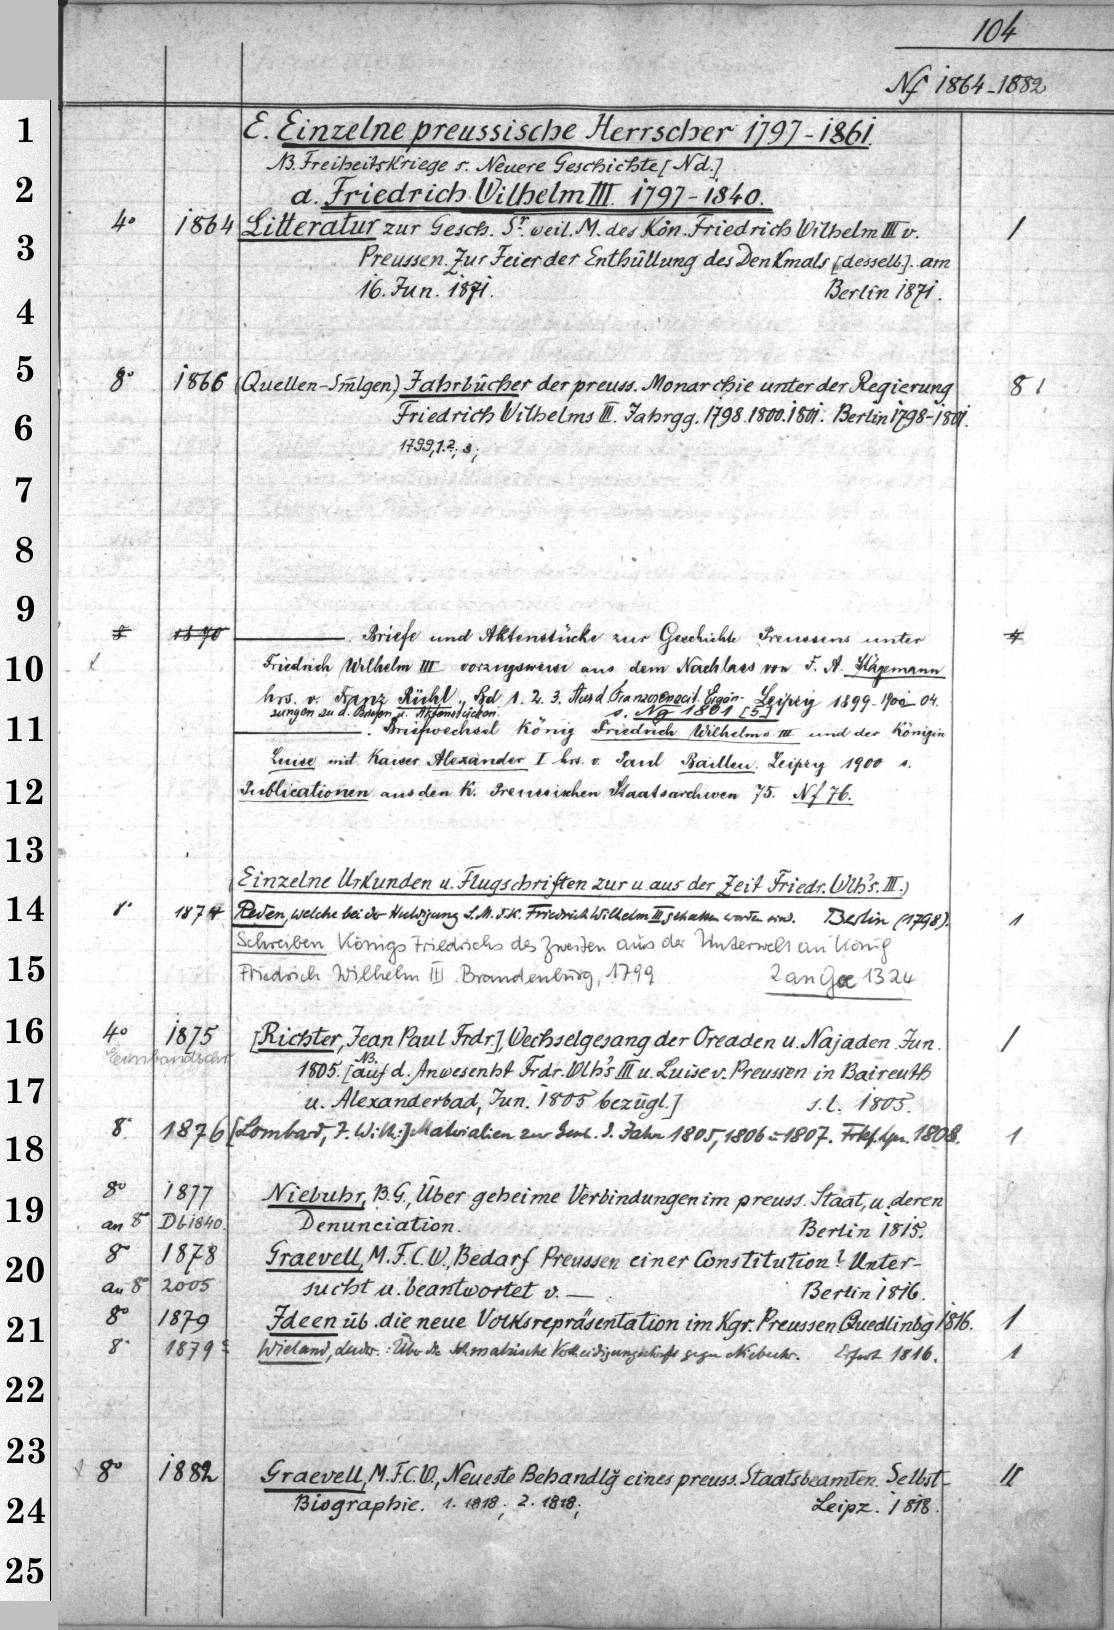 104
Nf 1864-1882
1
E. Einzelne preussische Herrscher 1797-1861.
NB. Freiheitskriege s. Neuere Geschichte [Nd.]
2
a. Friedrich Wilhelm III. 1797-1840.
4° 1864 Litteratur zur Gesch. Sr. weil. M. des Kön. Friedrich Wilhelm III v. 1
3
Preussen. Zur Feier der Enthüllung des Denkmals [desselb]. am
16. Jun. 1871. Berlin 1871.
4
5
8° 1866 (Quellen-Smlgen) Jahrbücher der preuss. Monarchie unter der Regierung 8 1
6
Friedrich Wilhelms III. Jahrgg. 1798.1800.1801. Berlin 1798-1801.
1799,1.2; 3;
7
8
9
8 1870 ——. Briefe und Aktenstücke zur Geschichte Preussens unter 4
10
Friedrich Wilhelm III vorzugsweise aus dem Nachlass von F. A. Stägemann
hrs. v. Franz Rühl. Bd 1. 2. 3. Aus d. Franzosenzeit. Ergän- Leipzig 1899-1902 04.
zungen zu d. Briefen u. Aktenstücken. s. Ng 1801 [5]
11
——. Briefwechsel König Friedrich Wilhelms III und der Königin
Luise mit Kaiser Alexander I hrs. v. Paul Bailleu. Leipzig 1900 s.
12
Publicationen aus den K. Preussischen Staatsarchiven 75. Nf 76.
13
(Einzelne Urkunden u. Flugschriften zur u. aus der Zeit Friedr. Wlh's. III.)
14
8° 1874 Reden, welche bei der Huldigung S. M. d. K. Friedrich Wilhelm III gehalten worden sind. Berlin (1798). 1
Schreiben Königs Friedrichs des Zweiten aus der Unterwelt an König
15
Friedrich Wilhelm III. Brandenburg, 1799 2 an Gx 1324
16
4° 1875 [Richter, Jean Paul Frdr.], Wechselgesang der Oreaden u. Najaden. Jun. 1
Einbandschr.
1805. [NB. auf d. Anwesenht Frdr. Wlh's III u. Luise v. Preussen in Baireuth
17
u. Alexanderbad, Jun. 1805 bezügl.] s. l. 1805.
8° 1876 [Lombard, J. Wilh.:] Materialien zur Gesch. d. Jahre 1805, 1806 u. 1807. Frkf. Lpz. 1808. 1
18
8° 1877 Niebuhr, B. G., Über geheime Verbindungen im preuss. Staat, u. deren
19
an 8° Db 1840. Denunciation. Berlin 1815.
8° 1878 Graevell, M. F. C. W., Bedarf Preussen einer Constitution? Unter-
20
an 8 2005 sucht u. beantwortet v. —. Berlin 1816.
8° 1879 Ideen üb. die neue Volksrepräsentation im Kgr. Preussen. Quedlinbg 1816. 1
21
8° 1879a Wieland, Ludw.: Über die Schmalzische Vertheidigungsschrift gegen Niebuhr. Erfurt 1816. 1
22
23
8° 1882 Graevell, M. F. C. W., Neueste Behandlg eines preuss. Staatsbeamten. Selbst- II
24
Biographie. 1. 1818; 2. 1818; Leipz. 1818.
25